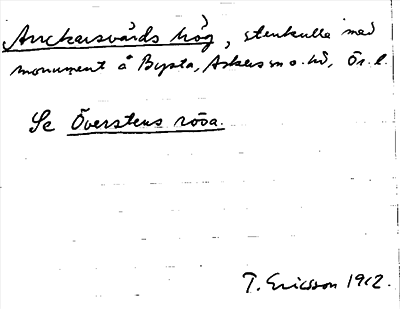 Anckarsvärds hög, stenkulle med
monument å Bysta, Askers sn o. hd, Ör. l.
Se Överstens rösa.
T. Ericsson 1912.